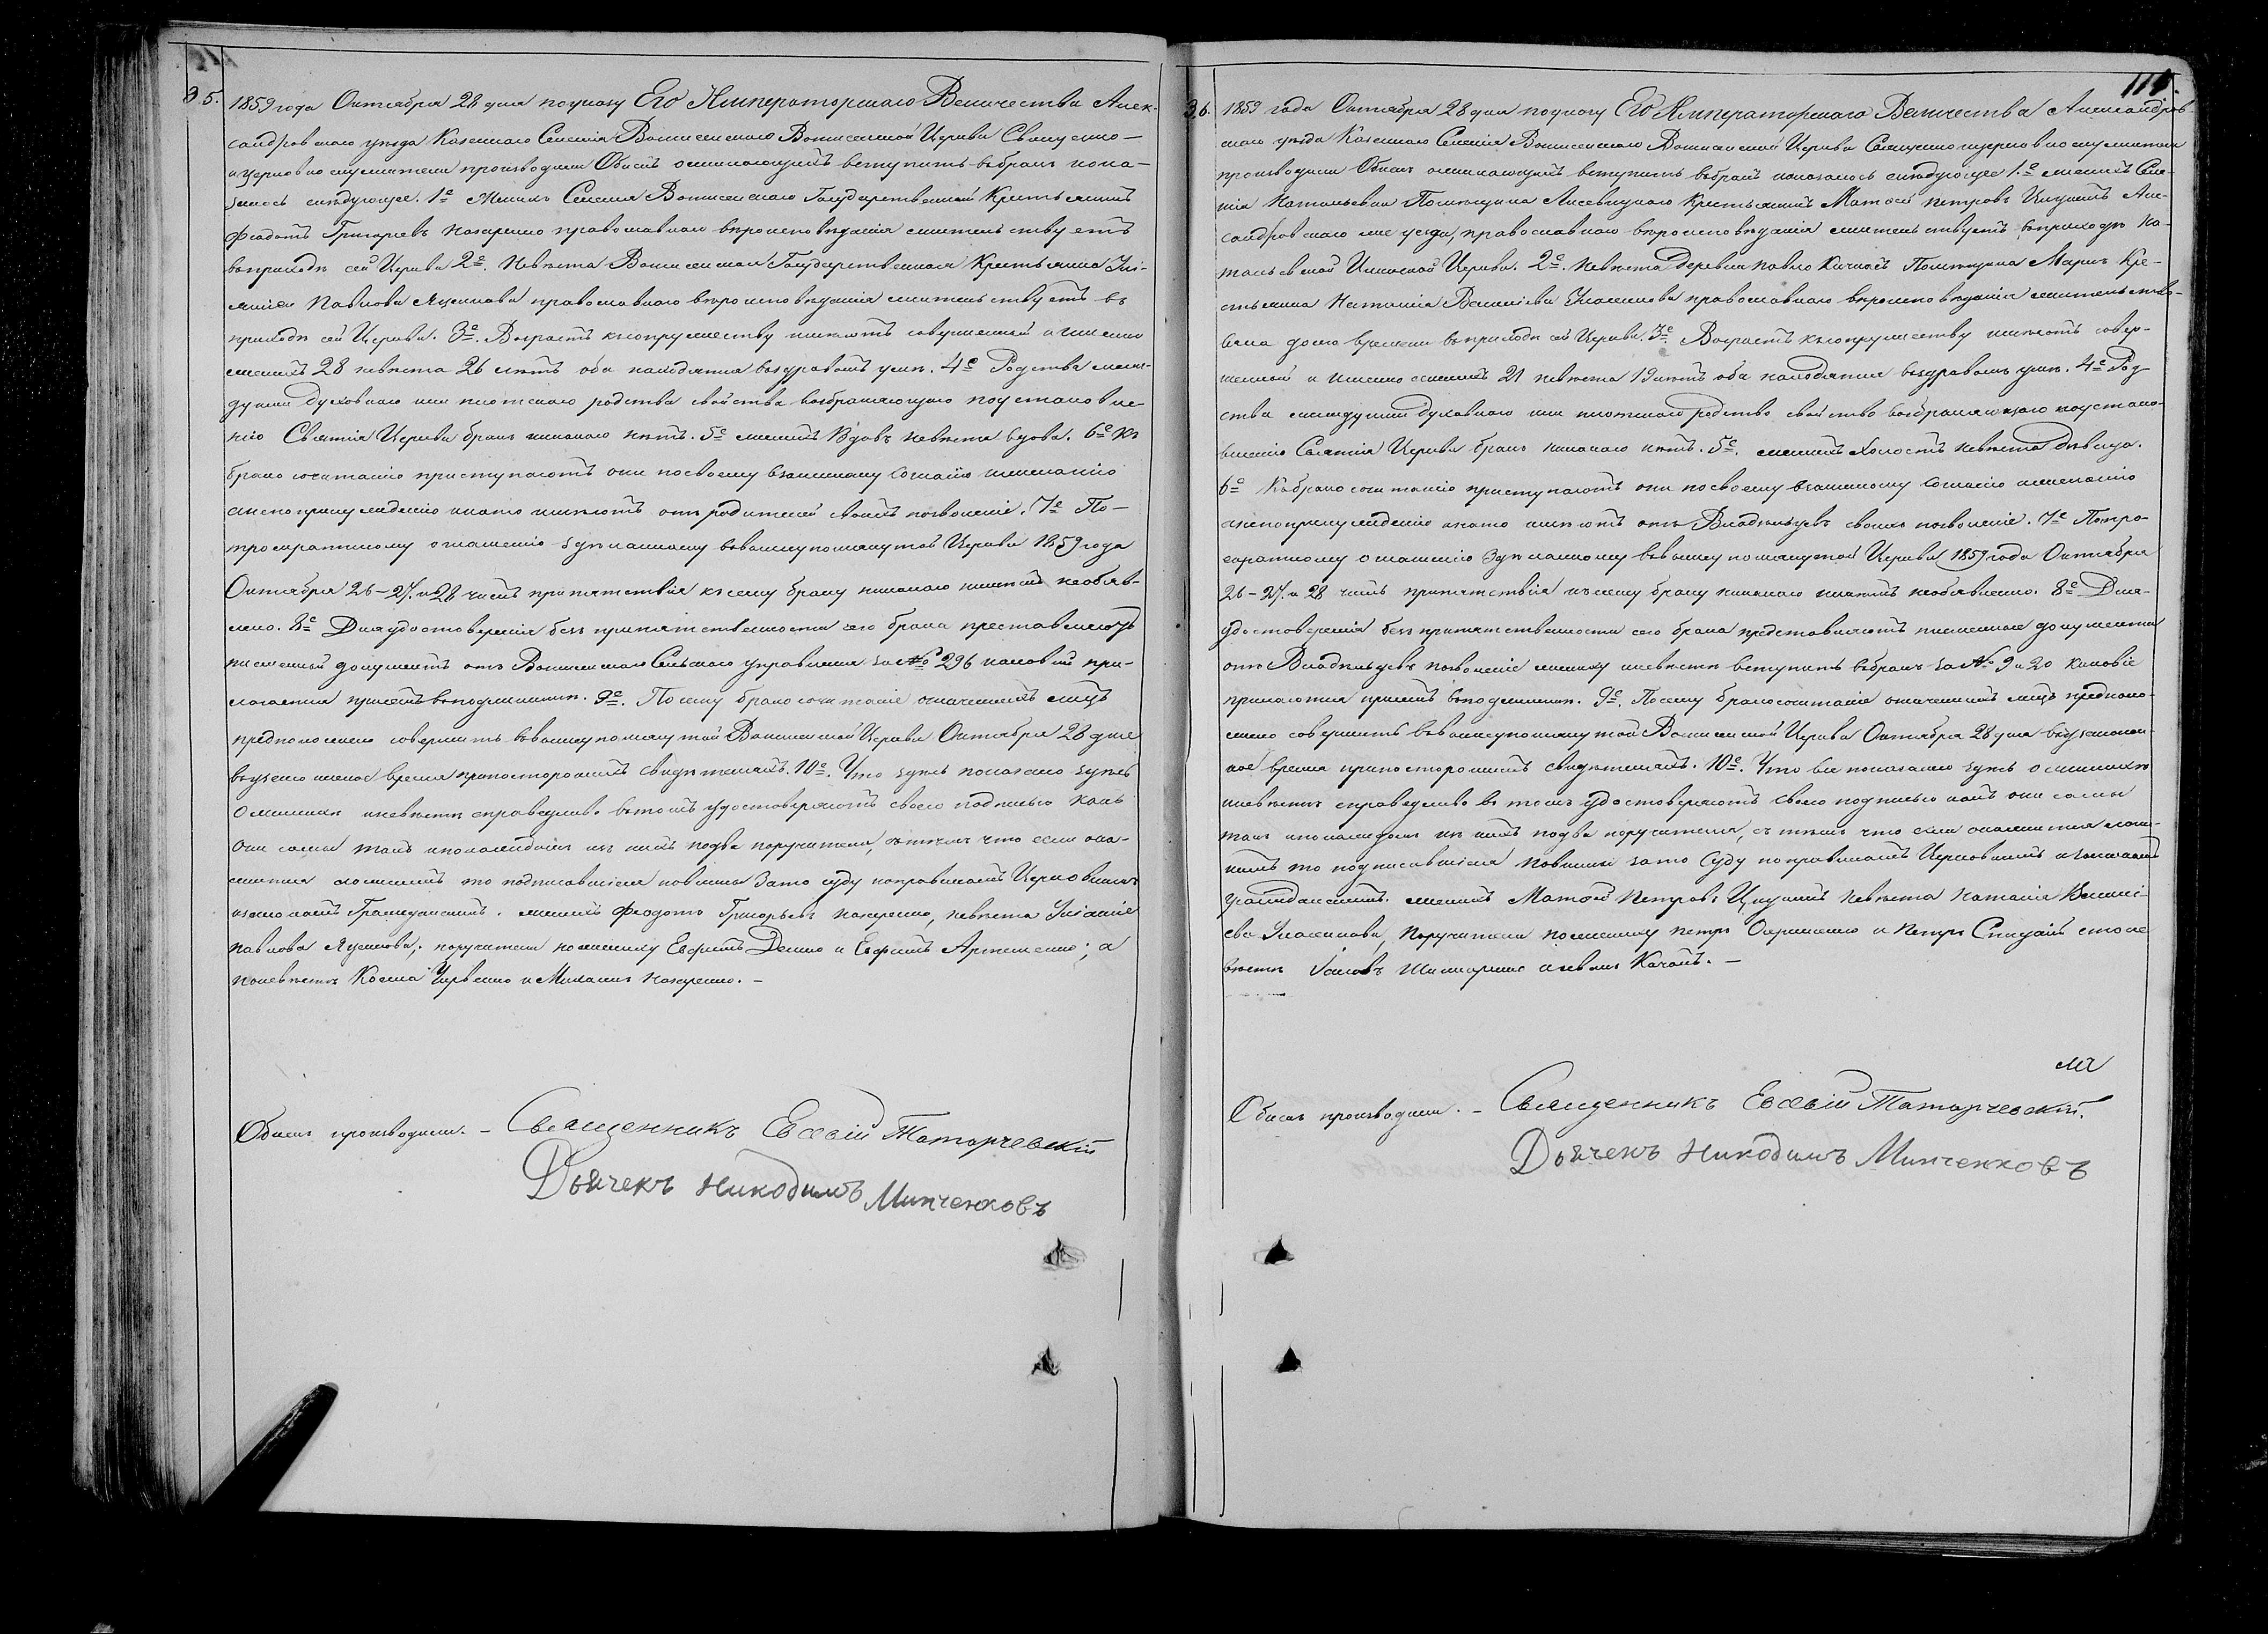 35. 1859 года Октября 28 дня по указу Его Императорскаго Величества Алек-
сандровскаго уезда Казеннаго Селенія Вознесенскаго Вознесенской Церкви Священно-
и церковнослужители производили Обыскъ о желающихъ вступить въ бракъ и ока-
залось слѣдующее. 1е Женихъ Селенія Вознесенскаго Государственный Крестьянинъ
Феодотъ Григорьевъ Назаренко православнаго вѣроисповѣданія жительствуетъ
въ приходѣ сей Церкви 2е. Невѣста Вознесенская Государственная Крестьянка
Павлова Яценкова православнаго вѣроисповѣданія жительствуетъ въ
приходѣ сей Церкви. 3е. Возрастъ къ супружеству имѣютъ совершенный а именно
женихъ 28 невѣста 26 лѣтъ оба находятся въ здравомъ умѣ. 4е Родства меж-
ду ими духовнаго или плотскаго родства свойства возбраняющаго по установле-
нію Святыя Церкви бракъ никакого нѣтъ. 5е женихъ Вдовъ невѣста вдова. 6е Къ
бракосочитанію приступаютъ они по своему взаимному согласію и желанію
а не по принужденію и на то имѣютъ отъ родителей своихъ позволеніе. 7е По-
троекратному оглашенію здѣланному въ вышеупомянутой Церкви 1859 года
Октября 26-27. и 28 числъ припятствія къ сему браку никакого никѣмъ необъяв-
лено. 8е Для удостоверенія безъ припятственности сего брака преставляютъ
писменный документъ отъ Вознесенскаго Сельскаго управленія за № 296 каковый при-
лагается при семъ въ подлинникѣ. 9е. По сему бракосочитаніе означенныхъ лицъ
предположено совершить въ вышеупомянутой Вознесенской Церкви Октября 28 дня
въ узаконенное время при постороннихъ свидѣтеляхъ. 10е. Что здѣсь показано здѣсь
о женихѣ и невѣстѣ справедливо въ томъ удостоверяютъ своею подписью какъ
они сами такъ и по каждомъ изъ нихъ по два поручителя, съ тѣмъ что если ока-
жится ложнымъ то подписавшіеся повинны за то суду по правиламъ Церковнымъ
и законамъ Гражданскимъ. женихъ Феодотъ Григорьевъ Назаренко, невѣста
Павлова Яценкова; поручители по женихѣ Евфимъ Демко и Евфимъ Артеменко; а
по невѣстѣ Косма Червенко и Михаилъ Назаренко. —
Обыскъ производили. — Священникъ Евсевій Татарчевскій
Дьячекъ Никодимъ Минченковъ
111.
36. 1859 года Октября 28 дня по указу Его Императорскаго Величества Александров-
скаго уезда Казеннаго Селенія Вознесенскаго Вознесенской Церкви Священно и церковнослужители
производили Обыскъ о желающихъ вступить въ бракъ и оказалось слѣдующее 1.е женихъ Селе-
нія Натальевки Помѣщика Лисевицкаго Крестьянинъ Матѳей Петровъ Алек-
сандровскаго же уезда, православнаго вѣроисповѣданія жительствуетъ въ приходѣ На-
тальевской Церкви. 2е. Невѣста Деревни Павло Кичкасъ Помѣщика Маркъ Кре-
стьянка Наталія православнаго вѣроисповѣданія жительство-
вала до сего времени въ приходѣ сей Церкви. 3е. Возрастъ къ супружеству имѣютъ совер-
шенный и именно женихъ 21 невѣста 19 лѣтъ оба находятся въ здравомъ умѣ. 4е Род-
ства между ими духовнаго или плотскаго родства свойства возбраняющаго по устано-
вленію Святыя Церкви бракъ никакого нѣтъ. 5е. женихъ Холостъ невѣста Дѣвица.
6е Къ бракосочитанію приступаютъ они по своему взаимному согласію и желанію
а не по принужденію и на то имѣютъ отъ Владѣльцевъ своихъ позволеніе. 7е По тро-
екратному оглашенію здѣланному въ вышеупомянутой Церкви 1859 года Октября
26-27. и 28 числъ припятствія къ сему браку никакого никѣмъ необъявлено. 8е Для
удостоверенія безъ припятственности сего брака представляютъ писменные документы
отъ Владѣльцевъ позволеніе жениху и невѣстѣ вступить въ бракъ за № 9 и 20 каковіе
прилагаются при семъ въ подлинникѣ. 9е. По сему бракосочитаніе означенныхъ лицъ предполо-
жено совершить въ вышеупомянутой Вознесенской Церкви Октября 28 дня въ узаконен-
ное время при постороннихъ свидѣтеляхъ. 10е. Что все показано здѣсь о женихѣ
и невѣстѣ справедливо въ томъ удостоверяютъ своею подписью какъ они сами
такъ и по каждомъ изъ нихъ по два поручителя, съ тѣмъ что если окажится лож-
нымъ то подписавшіеся повинны за то Суду по правиламъ Церковнымъ и законамъ
гражданскимъ. женихъ Матѳей Петровъ невѣста Наталія
Поручители по женихѣ Петръ и Петръ по не-
вѣстѣ Іаковъ
Обыскъ производили. — Священникъ Евсевій Татарчевскій.
Дьячекъ Никодимъ Минченковъ